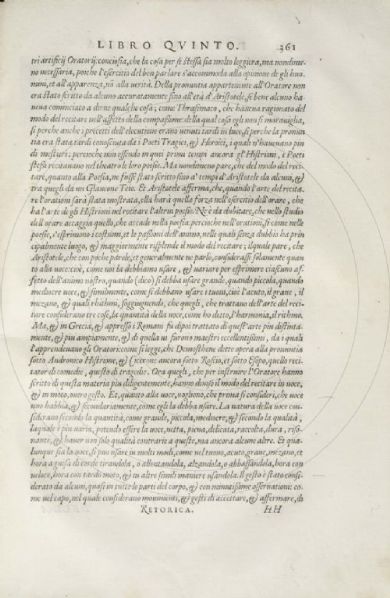 LIBRO QVINTO. 261
tri artificij Oratorij: conciosia, che la cosa per se stessa sia molto leggiera, ma nondime-
no necessaria, poiche l'esercitio del ben parlare s'accommoda alla opinione de gli huo-
mini, et all'apparenza, nō alla verità. Della pronuntia appartenente all'Oratore non
era stato scritto da alcuno accuratamente fino all'età d'Aristotele, se bene alcuno ha-
ueua cominciato a dirne qualche cosa; come Thrasimaco, che haueua ragionato del
modo del recitare nell'affetto della compassione. della qual cosa egli non si marauiglia,
si perche anche i precetti dell'elocutione erano venuti tardi in luce, si perche la pronun
tia era stata tardi conosciuta da i Poeti Tragici, &
pi
di mestieri: percioche non essendo in quei primi tempi ancora gl'Histrioni, i Poeti
stessi recitauano nel theatro le loro poesie. Ma nondimeno pare, che del modo del reci-
tare, quanto alla Poesia, ne fusse stato scritto fino a' tempi d'Aristotele da alcuni, &
tra questi da un Glaucone Teio. Et Aristotele afferma, che, quando l'arte del recita-
re l'oration sarà stata mostrata, ella harà quella forza nell'esercitio dell'orare, che
ha l'arte de gli Histrioni nel recitare l'altrui poesie. Ne è da dubitare, che nello studio
dell'orare accaggia quello, che accade nella poesia. percioche nell'orationi, si come nelle
poesie, s'esprimono i costumi, et le passioni dell'animo, nelli quali senza dubbio ha prin
cipalmente luogo, & maggiormente risplende il modo del recitare; il quale pare, che
Aristotele, che con poche parole, et generalmente ne parlò, considerasse solamente quan
to alla uoce: cioè, come noi la debbiamo usare, & uariare per esprimere ciascuno af-
fetto dell'animo nostro, quando (dico) si debba usare grande, quando piccola, quando
mediocre uoce, & similmente, come si debbano usare i tuoni, cioè l'acuto, il graue, il
mezano, & quali rhithmi, soggiugnendo, che quegli, che trattano dell'arte del reci-
tare considerano tre cose, la quantità della uoce, come ho detto, l'harmonia, il rithmo.
Ma, & in Grecia, & appresso i Romani fu dipoi trattato di quest'arte più distinta-
mente, & più ampiamente, & di quella ui furono maestri eccellentissimi, da i quali
l'apprendeuano gli Oratori: come si legge, che Demosthene dette opera alla pronuntia
sotto Andronico Histrione, & Cicerone ancora sotto Roscio, et sotto Esopo, quello reci-
tator di comedie, questo di tragedie. Ora quegli, che per instruire l'Oratore hanno
scritto di questa materia più diligentemente, hanno diuiso il modo del recitare in uoce,
& in moto, ouero gesto. Et, quanto alla uoce, uogliono, che prima si consideri, che uoce
uno habbia, & secondariamente, come egli la debba usare. La natura della uoce con-
siderano secondo la quantità, come grande, piccola, mediocre; & secondo la qualità,
laquale è più uaria, potendo essere la uoce, netta, piena, delicata, raccolta, dura, riso-
nante, & hauer non solo qualità contrarie a queste, ma ancora alcune altre. Et qua-
lunque sia la uoce, si può usare in molti modi, come nel tuono, acuto, graue, mezano, et
hora a guisa di corde tirandola, o allentandola, alzandola, o abbassandola, hora con
ueloce, hora con tardi moti, & in altre simili maniere usandola. Il gesto è stato consi-
derato da alcuni, quasi in tutte le parti del corpo, & con minutissime osseruationi: co-
me nel capo, nel quale considerano mouimenti, & gesti di accettare, & affermare, di
RETORICA. HH